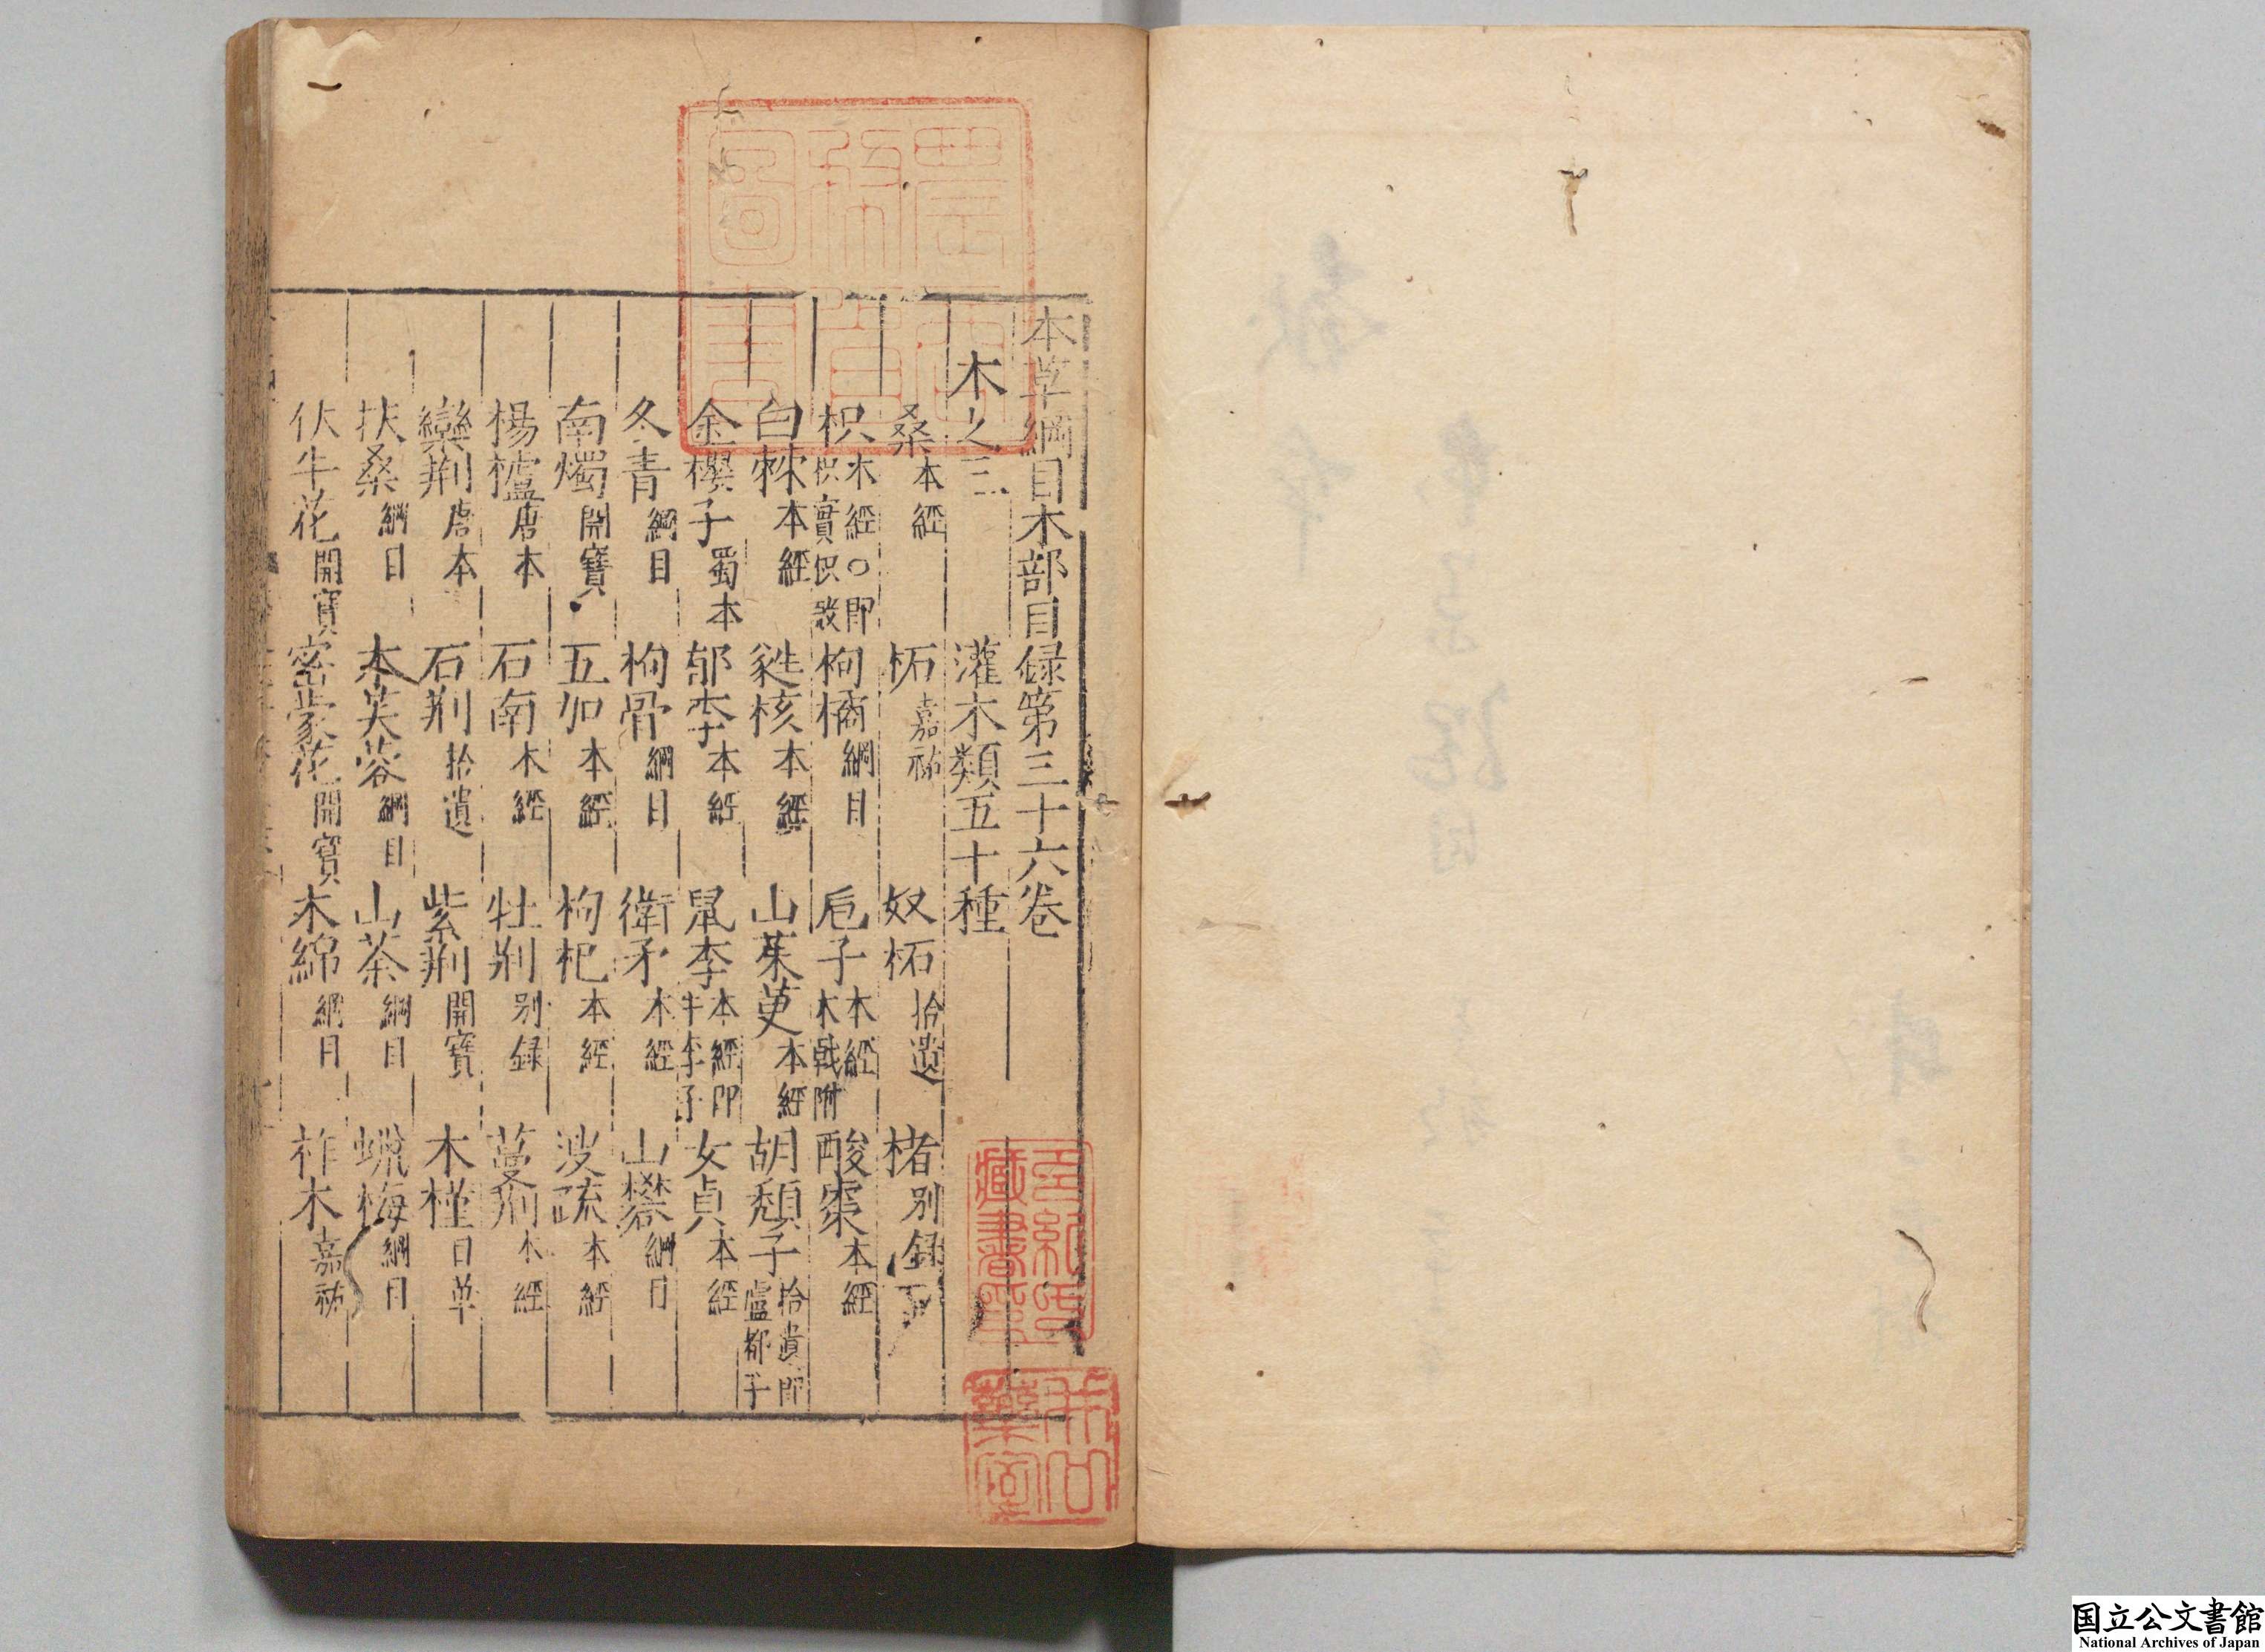 本草綱目木部目録第三十六卷
木之三 灌木類五十種
桑本經 柘嘉祐 奴柘拾遺 楮別録
枳木經○即枳實枳殼 枸橘綱目 卮子本經木戟附 酸棗本經
白棘本經 蕤核本經 山茱萸本經 胡頹子拾遺即盧都子
金櫻子蜀本 郁李本經 鼠李本經即牛李子 女貞本經
冬青綱目 枸骨綱目 衛矛木經 山礬綱目
南燭開寶 五加本經 枸杞本經 溲疏本經
楊櫨唐本 石南木經 牡荆别録 蔓荆木經
欒荆唐本 石荆拾遺 紫荆開寶 木槿日草
扶桑綱目 木芙蓉綱目 山茶綱目 蠟梅綱目
伏牛花開寶 密蒙花開寶 木綿綱目 柞木嘉祐
圖書
藏書
国立公文書館
National Archives of Japan